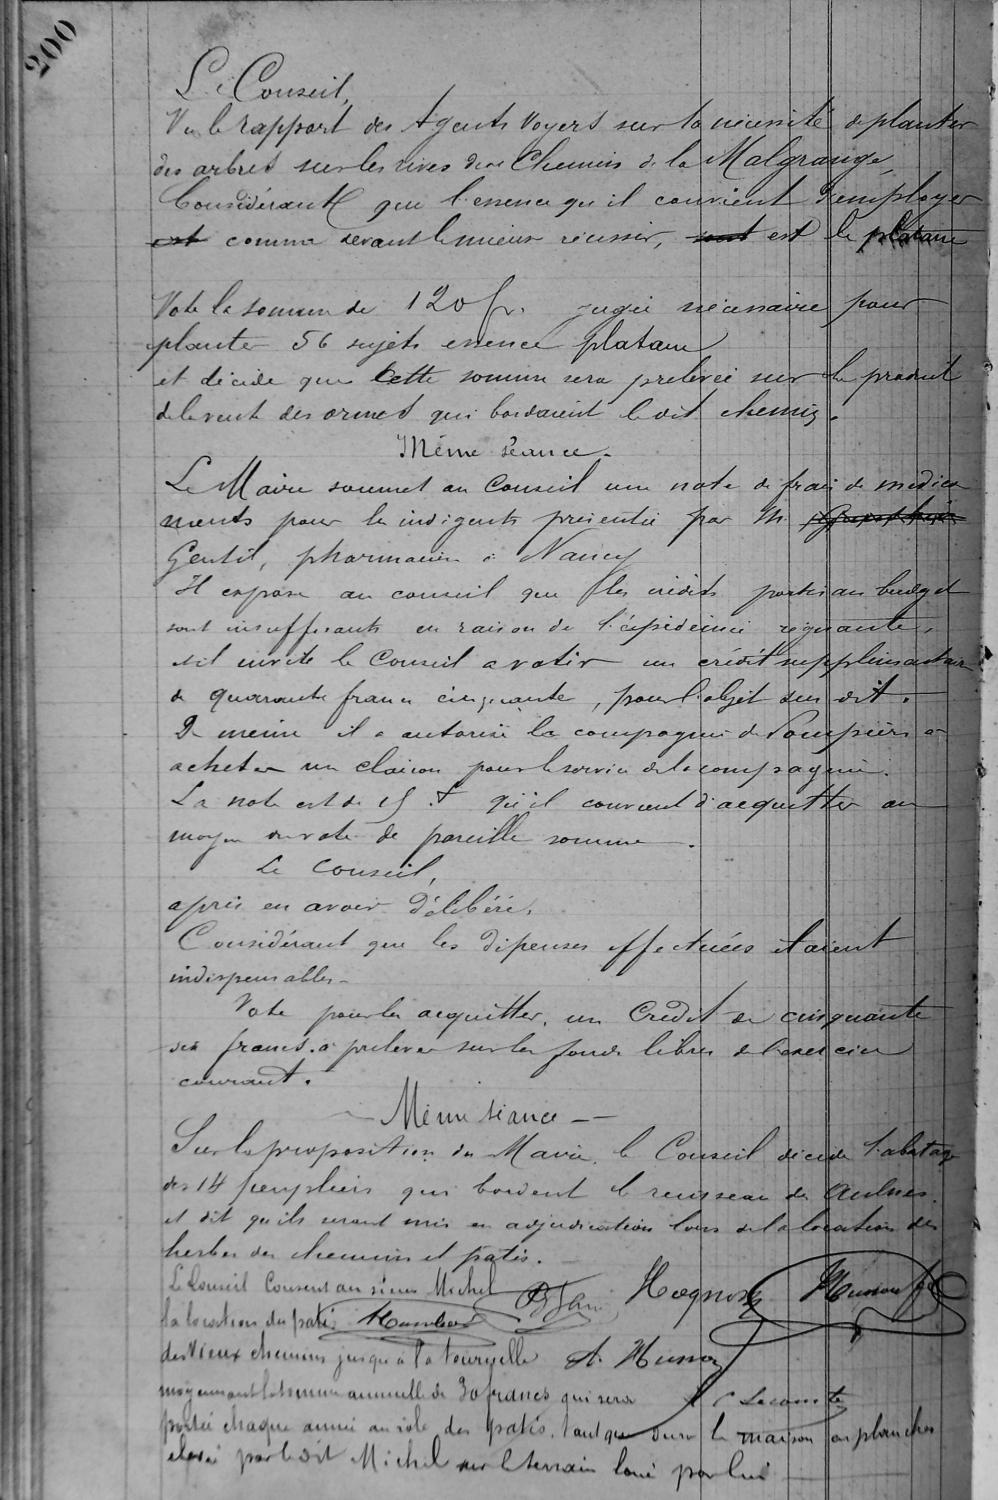 200
Le Conseil,
Vu le rapport des Agents Voyers sur la nécessité de planter
des arbres sur les rives du Chemin de la Malgrange,
Considérant que l'essence qu'il convient d'employer
est comme devant le mieux réussir, sont est le platane
Vote la somme de 120 fr. jugée nécessaire pour
planter 56 sujets essence platane
et décide que cette somme sera prelevée sur le produit
de la vente des ormes qui bordaient le dit chemin.
Même séance.
Le Maire soumet au Conseil une note de frais de médica
ments pour les indigents présentée par M.
Gentil, pharmacien à Nancy
Il expose au conseil que les crédits portés au budget
sont insuffisants en raison de l'épidémie régnante,
et il invite le Conseil a votér un crédit supplémentaire
de quarante francs cinquante, pour l'objet sus dit.
De même il a autorisé la compagnie de Pompiers a
acheter un clairon pour le service de la compagnie.
La note est de 15 f qu'il convient d'acquitter au
moyen du vote de pareille somme.
Le Conseil,
après en avoir délibéré,
Considérant que les dépenses effectuées etaient
indispensables
Vote pour les acquitter, un Crédit de cinquante
six francs à prelever sur les fonds libres de l'exercice
courant.
— Même séance —
Sur la proposition du Maire, le Conseil décide l'abatage
des 14 peupliers qui bordent le ruisseau des Aulnes.
et dit qu'ils seront mis en adjudication lors de la location des
herbes des chemins et patis.
Le Conseil Consent au sieur Michel
la location des patis
des vieux chemins jusqu'à la tourelle A. Husson
moyennant la somme annuelle de 30 francs qui sera Lecomte
portée chaque année au rôle des patis, tant que dure la maison en planches
élevée par le dit Michel sur le terrain loué par lui